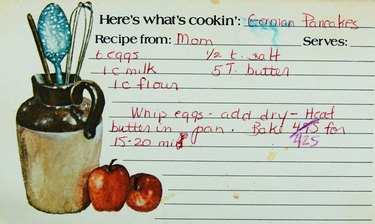 Here's what's cookin': German Pancakes
Recipe from: Mom Serves:
eggs ½ t. Salt
1 c milk 5 T. butter
1 c flour
Whip eggs - add dry - Heat
butter in pan. Bake 495 for
15-20 min 425